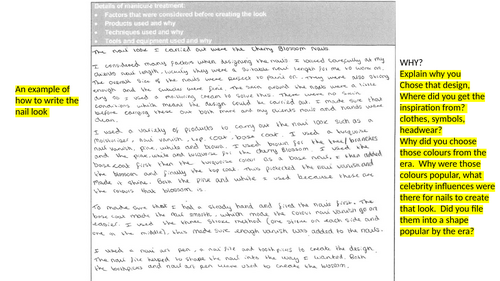 Details of manicure treatment:
• Factors that were considered before creating the look
• Products used and why
• Techniques used and why
• Tools and equipment used and why
The nail look I carried out were the Cherry Blossom nails
I considered many factors when designing the nails I looked carefully at my
clients nail length, luckily they were a suitable nail length for me to work on.
The overall size of the nails were perfect to paint on. They were also strong
enough and the cuticles were fine. The skin around the nails were a little
dry so I used a moisturising cream to solve this. There were no skin
conditions which means the design could be carried out. I made sure that
before carrying them out both mine and my clients nails and hands were
clean.
I used a variety of products to carry out the nail look such as a
moisturiser, nail varnish, top coat, base coat. I used a turquoise
nail varnish, pink, white and brown. I used brown for the tree branches
and the pink, white and turquoise for the cherry blossom. I used the
base coat first then the turquoise colour as a base nail, I then added
the blossom and finally the top coat. This protected the nail varnish and
made it shine. Also the pink and white I used because these are
the colours that blossom is.
To make sure that I had a steady hand and filed the nails first. The
base coat made the nail smooth, which made the colour nail varnish go on
easier. I used the three stroke method (one stroke on each side and
one in the middle), this made sure enough varnish was added to the nails.
I used a nail art pen, a nail file and toothpicks to create the design.
The nail file helped to shape the nail into the way I wanted. Both
the toothpicks and nail art pen were used to create the blossom.
An example of
how to write the
nail look
WHY?
Explain why you
Chose that design,
Where did you get the
inspiration from?
clothes, symbols,
headwear?
Why did you choose
those colours from the
era.  Why were those
colours popular, what
celebrity influences were
there for nails to create
that look.  Did you file
them into a shape
popular by the era?